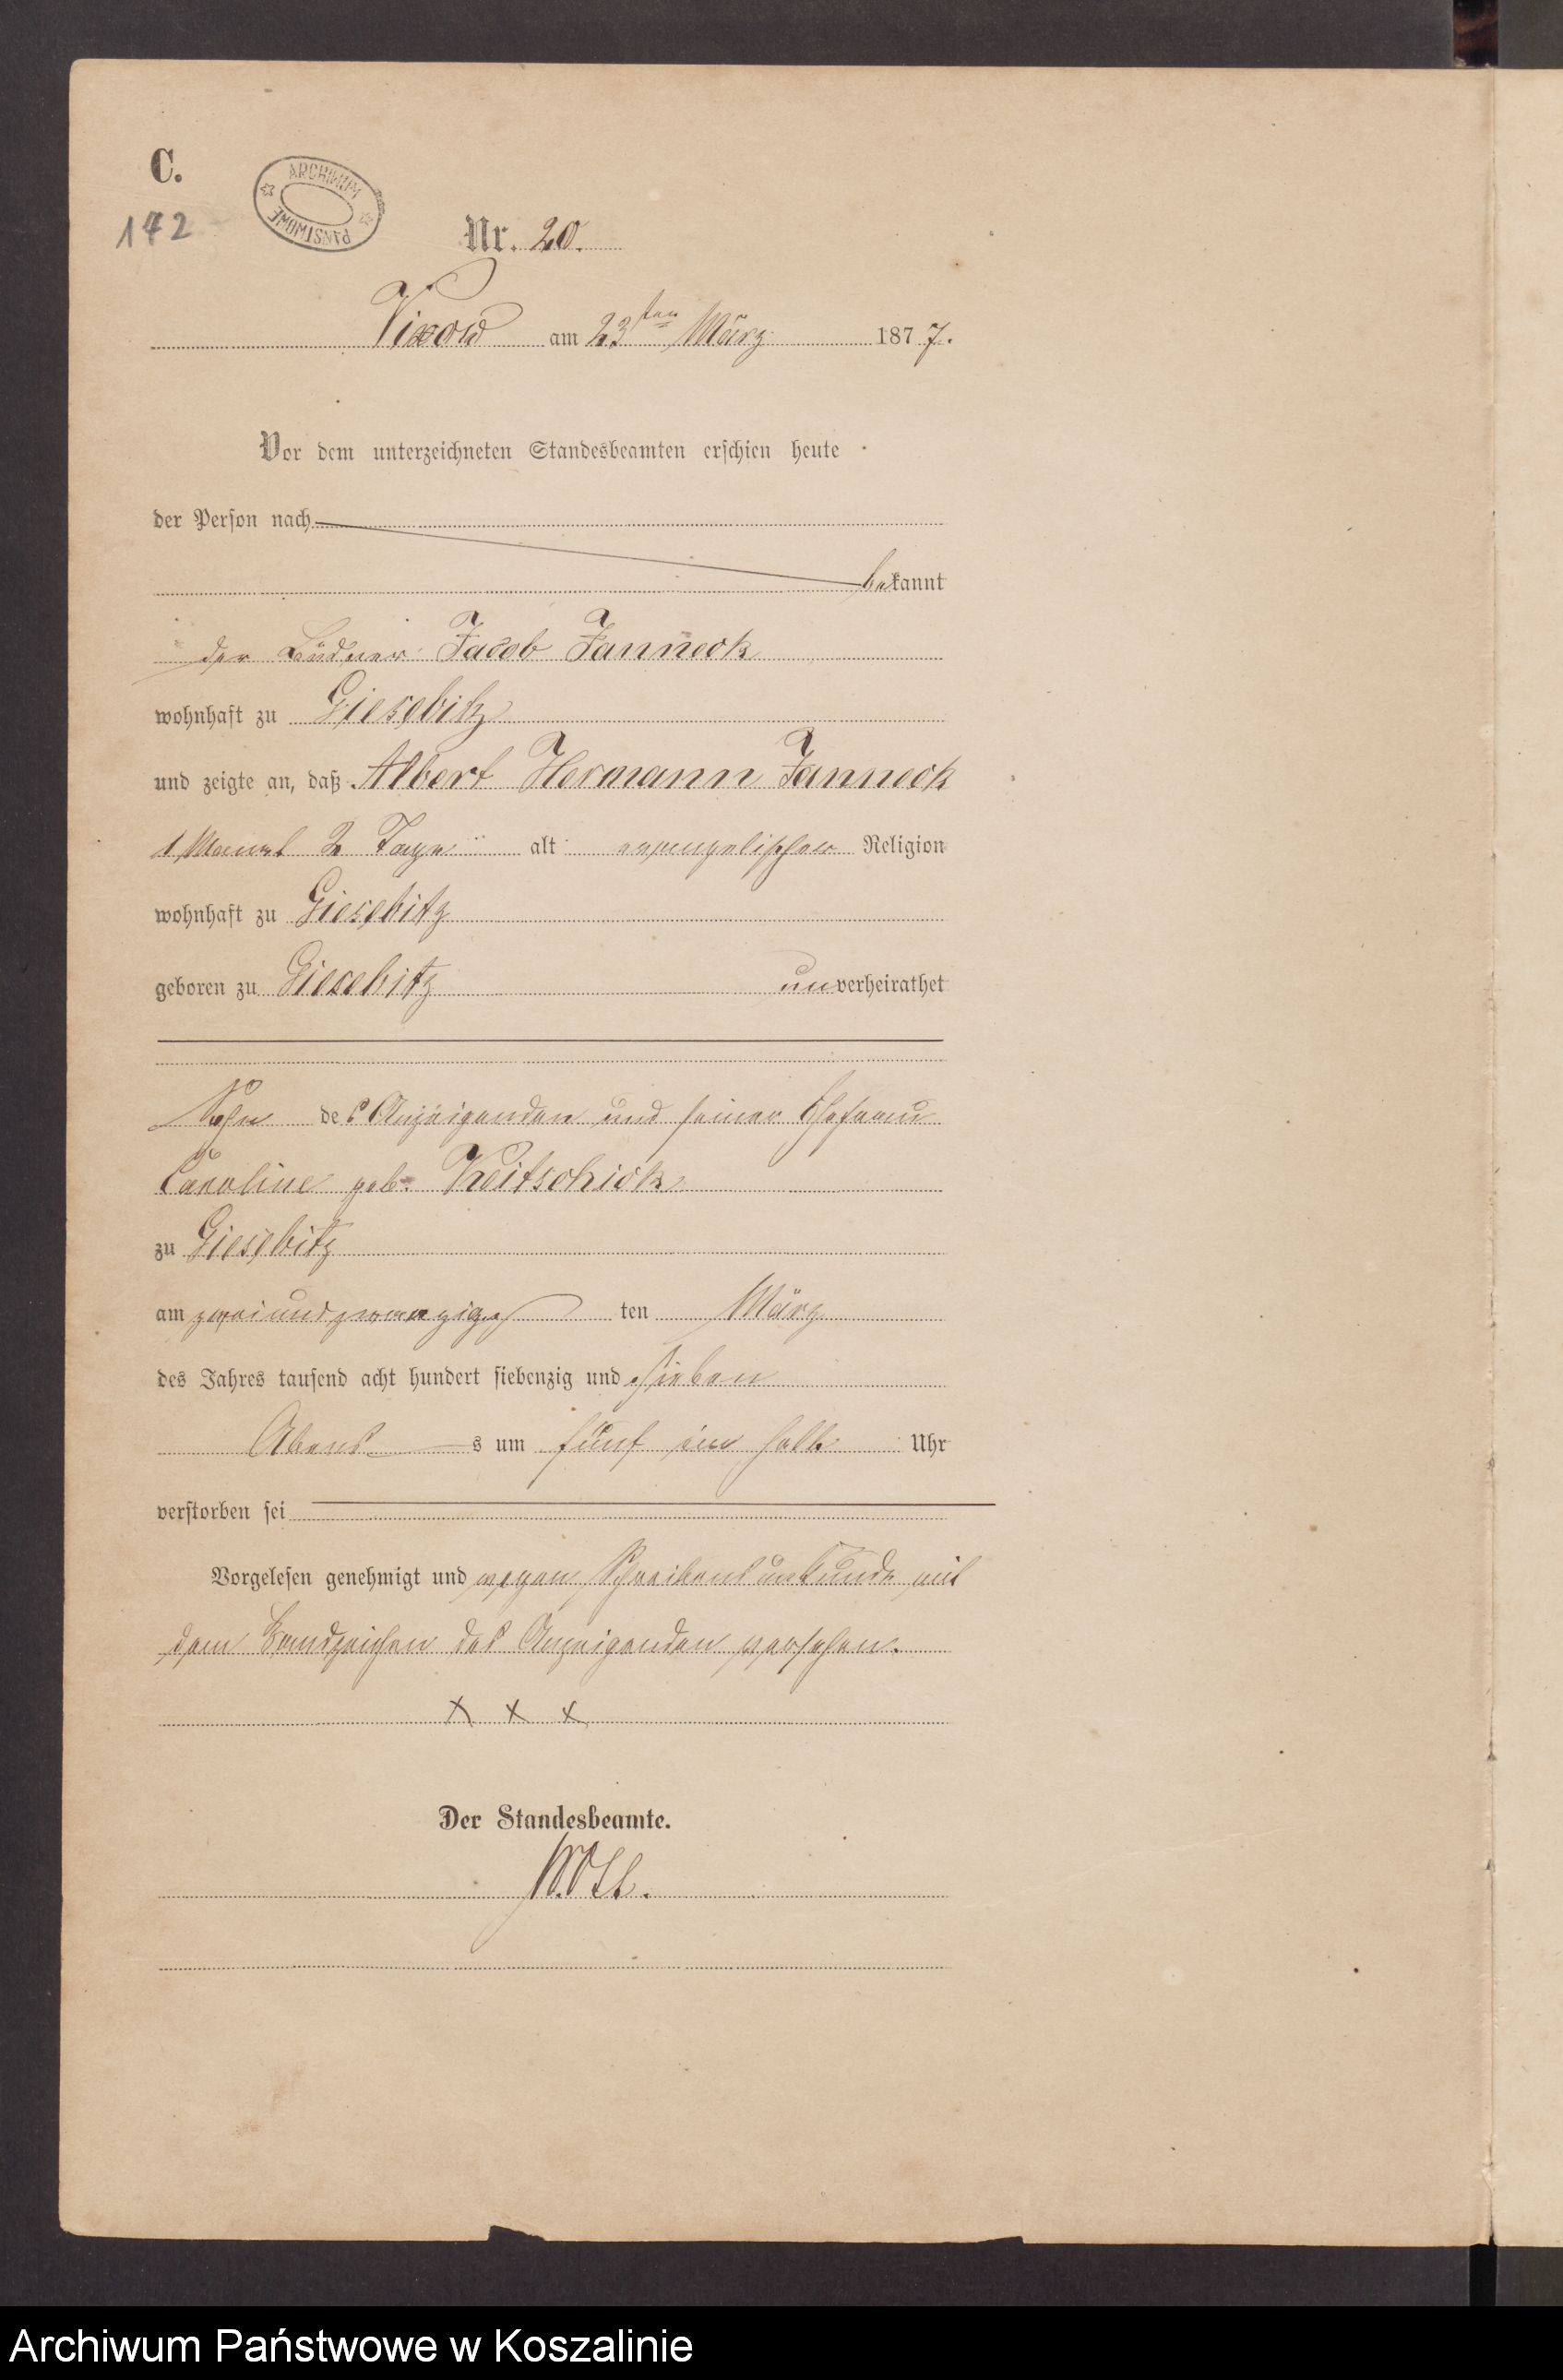 C.
ARCHIWUM PAŃSTWOWE
172
Nr. 20.
Vixow am 23ten März 1877.
Vor dem unterzeichneten Standesbeamten erschien heute
der Person nach
bekannt
der Büdner Jacob Janneck
wohnhaft zu Giesebitz
und zeigte an, daß Albert Hermann Janneck
1 Monat 2 Tage alt evangelischer Religion
wohnhaft zu Giesebitz
geboren zu Giesebitz unverheirathet
Sohn des Anzeigenden und seiner Ehefrau
Caroline geb. Keitschick
zu Giesebitz
am zweiundzwanzigsten März
des Jahres tausend acht hundert siebenzig und sieben
Abends um fünf ein halb Uhr
verstorben sei
Vorgelesen genehmigt und wegen Schreibensunkunde mit
dem Handzeichen des Anzeigenden versehen.
x x x
Der Standesbeamte.
Archiwum Państwowe w Koszalinie